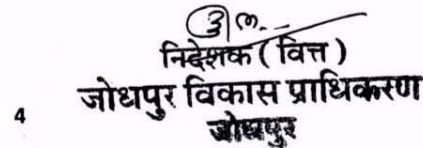 निदेशक (वित्त)
जोधपुर विकास प्राधिकरण
4
जोधपुर